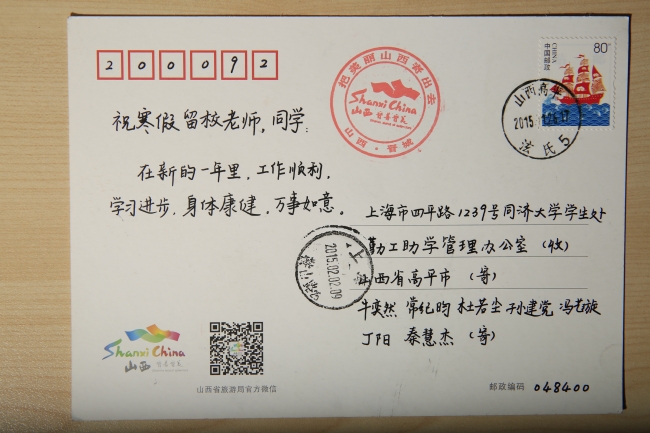 200092
把美丽山西寄出去
Shanxi China
山西 晋善晋美
山西·晋城
80分
CHINA
中国邮政
山西高平
2015
法氏5
祝寒假留校老师,同学:
在新的一年里,工作顺利,
学习进步,身体康健,万事如意。
上海市四平路1239号同济大学学生处
勤工助学管理办公室(收)
山西省高平市(寄)
牛奕然 常纪昀 杜若尘 孙建党 冯艺璇
丁阳 秦慧杰(寄)
上
2015.02.02.09
Shanxi China
山西 晋善晋美
山西省旅游局官方微信
邮政编码 048400